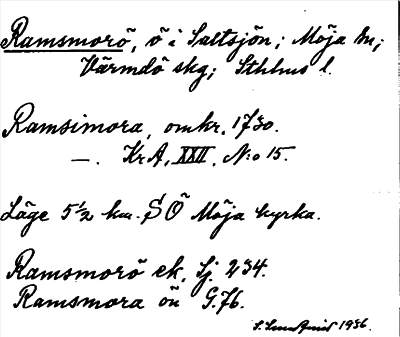 Ramsmorö, ö i Saltsjön; Möja sn;
Värmdö skg; Sthlms l.
Ramsimora, omkr. 1730.
—. KrA, XXII, N:o 15.
Läge 5½ km. SÖ Möja kyrka.
Ramsmorö ek. Sj. 234.
Ramsmora ön G.76.
1936.